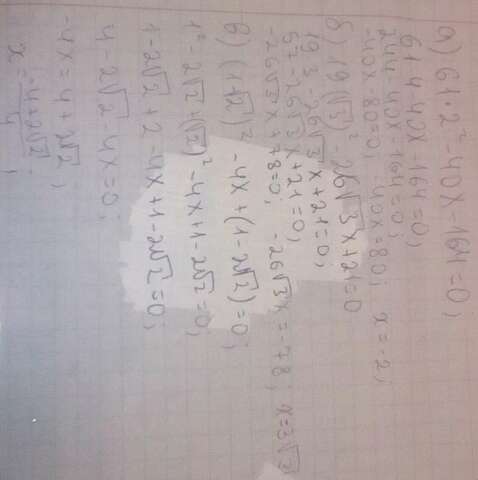 а) 61·2²-40x-164=0;
61·4-40x-164=0;
244-40x-164=0;
-40x-80=0; 40x=80; x=-2;
б) 19(√3)²-26√3x+21=0
19·3-26√3x+21=0;
57-26√3x+21=0;
-26√3x+78=0; -26√3x=-78; x=3√3
в) (1+√2)²-4x+(1-2√2)=0;
1²-2√2+(√2)²-4x+1-2√2=0;
1-2√2+2-4x+1-2√2=0;
4-2√2-4x=0;
-4x=4+2√2;
x=-4+2√2/4;